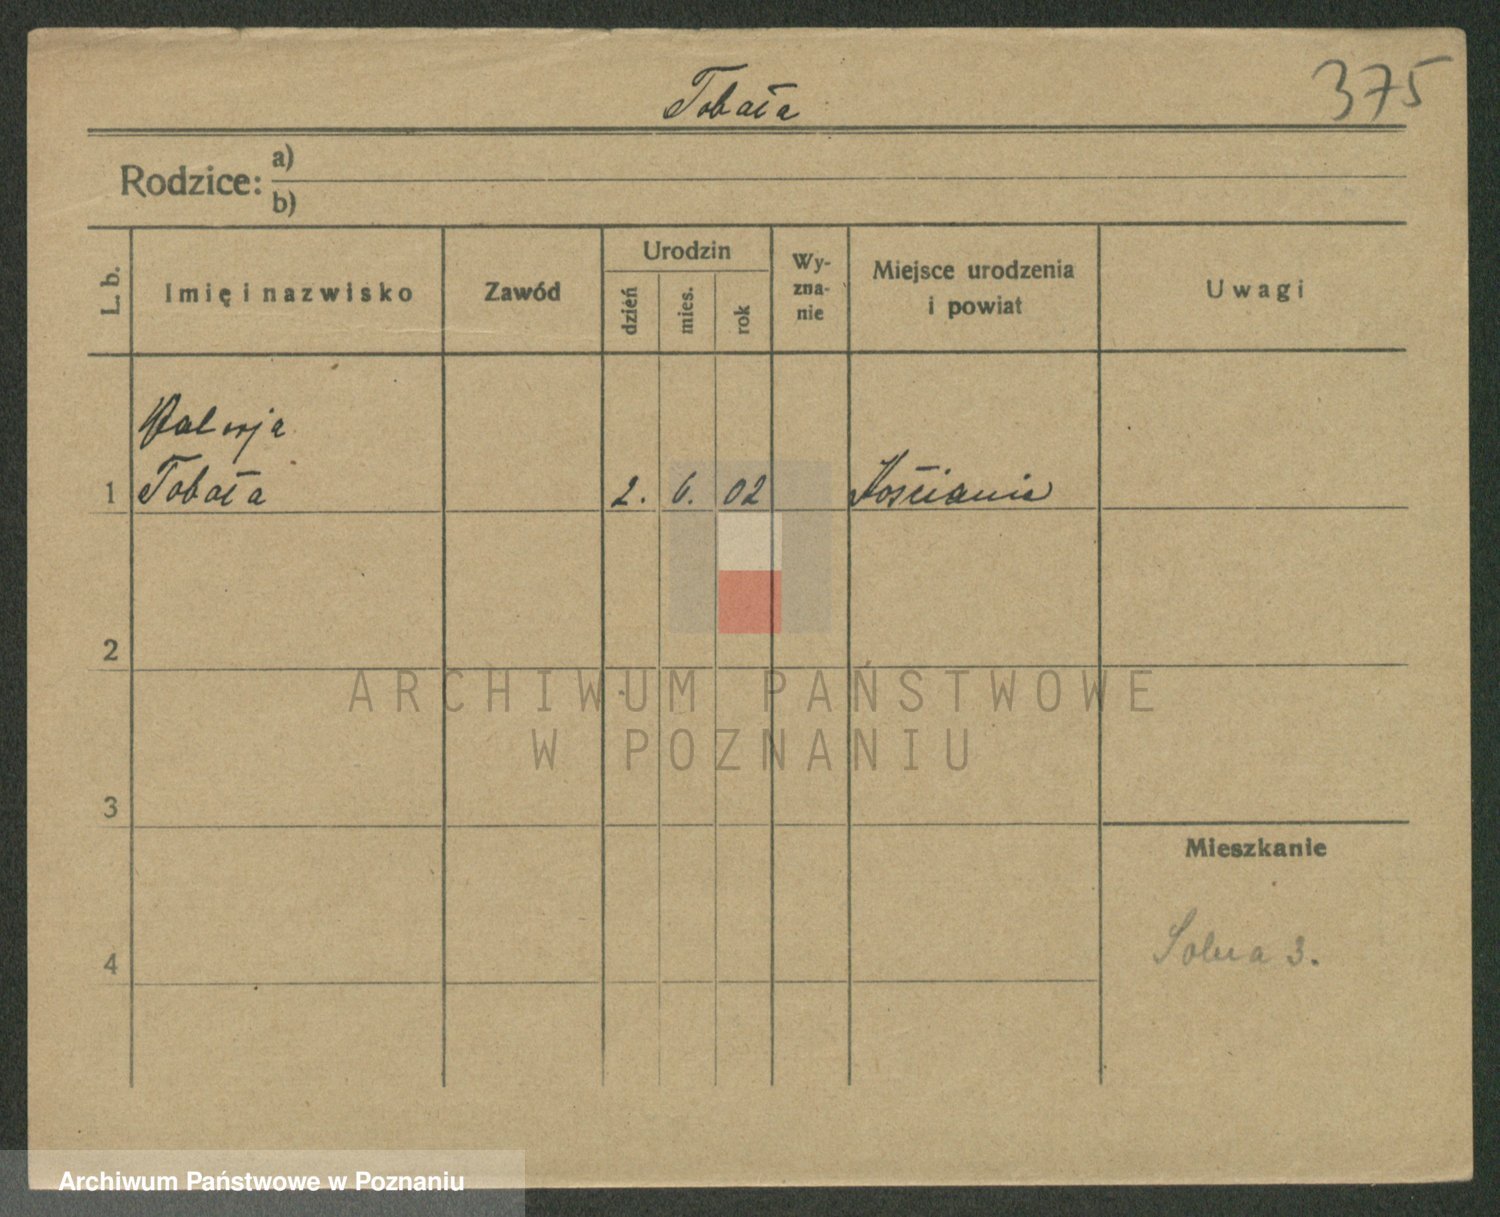 Tobała
375
Rodzice: a)
b)
L. b.
Imię i nazwisko
Zawód
Urodzin
dzień
mies.
rok
Wy-
zna-
nie
Miejsce urodzenia
i powiat
Uwagi
1
Tobała
2. 6. 02
2
3
4
Mieszkanie
3.
ARCHIWUM PAŃSTWOWE
W POZNANIU
Archiwum Państwowe w Poznaniu